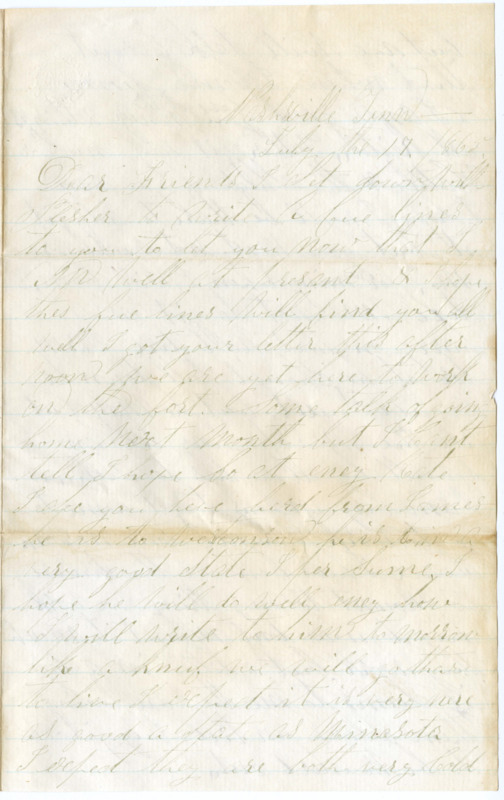 Nashville Tenn
July the 17 186
Dear Friends I set down with
plesher to write a fue lines
to you to let you now that I
am well at present & hope
thes fue lines will find you all
well I got your letter this after
noon we are yet here to work
on the fort. Some talk of goin
home next month but I can't
tell I hope so at eney rate
I see you have herd from James
he is to wisconson he is in a
very good state I per sume, I
hope he will to well eney how
I will write to him to morrow
like a knuf we will go thare
to live I expect it is very nere
as good a stat as Minesota
I expect they are both very cold